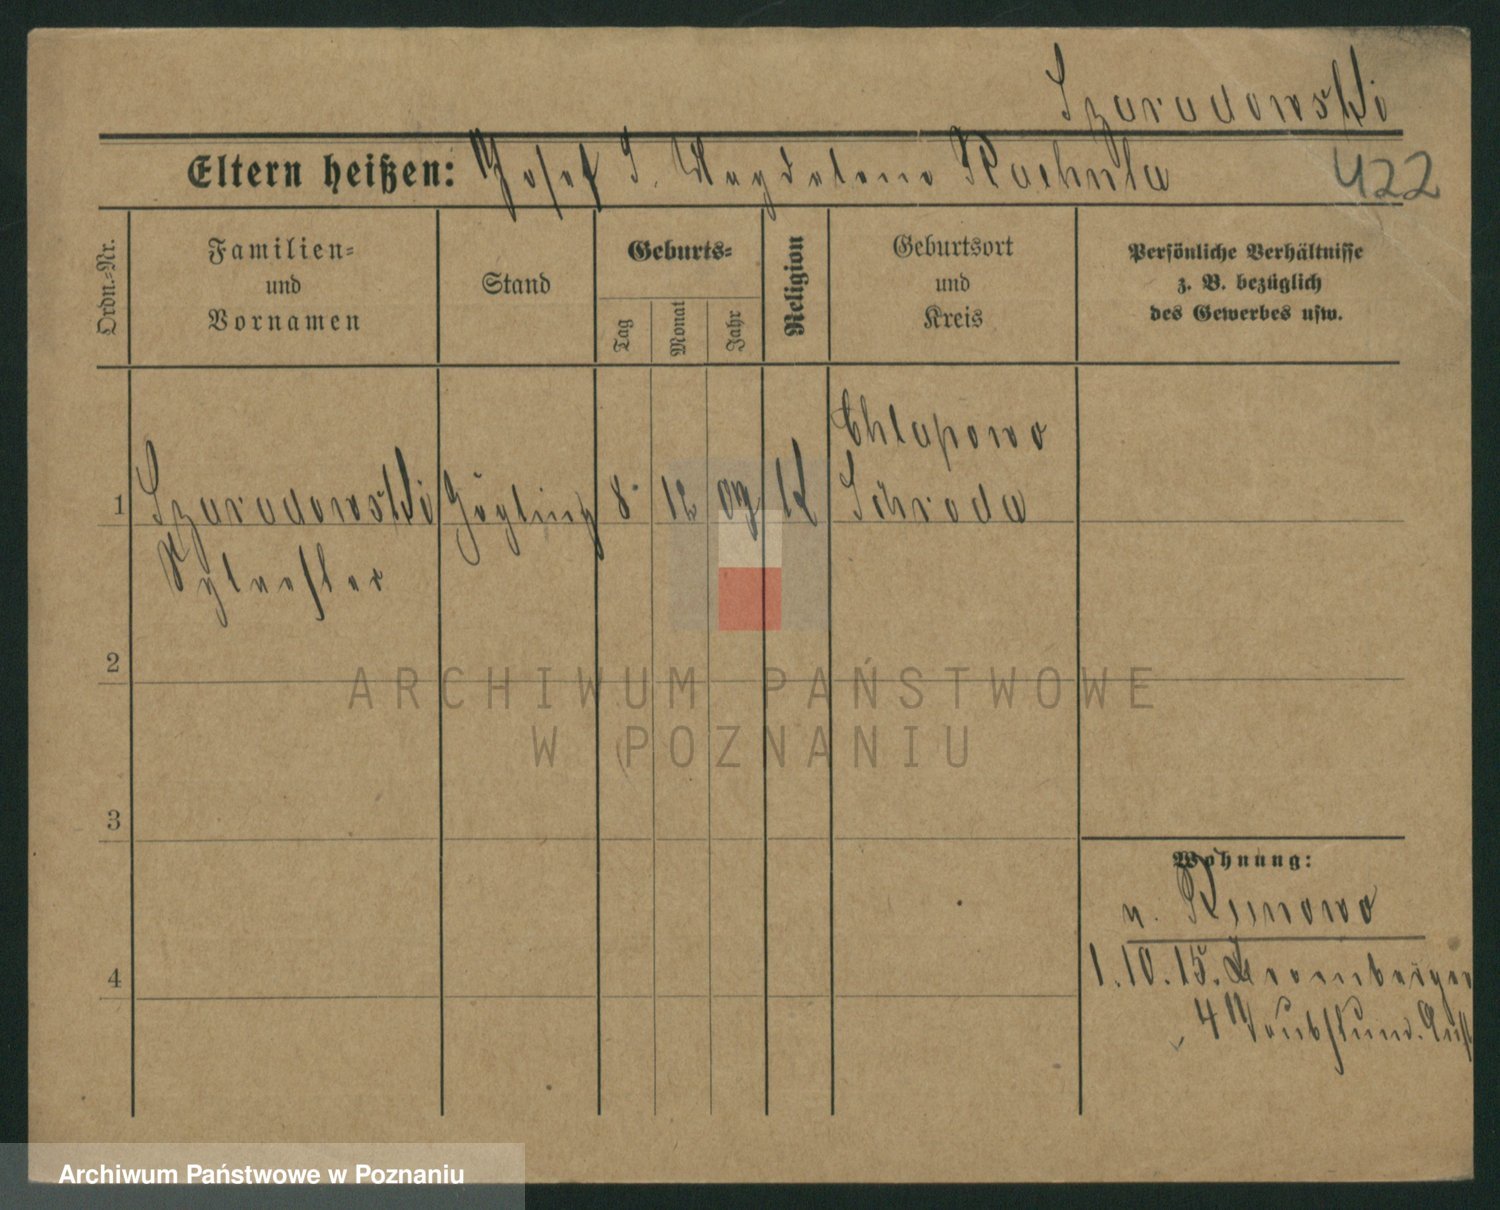 Szaradowski
Eltern heißen: Josef S. Magdalena Kachula
422
Ordn.-Nr.
Familien-
und
Vornamen
Stand
Geburts-
Tag
Monat
Jahr
Religion
Geburtsort
und
Kreis
Persönliche Verhältnisse
z. B. bezüglich
des Gewerbes usw.
1
Szaradowski
Sylvester
Zögling
8.
12
09
k
Chlapowo
Schroda
2
3
4
Wohnung:
n. Kunowo
1.10.15. Bromberger
4 Taubstum. Anst
ARCHIWUM PAŃSTWOWE
W POZNANIU
Archiwum Państwowe w Poznaniu